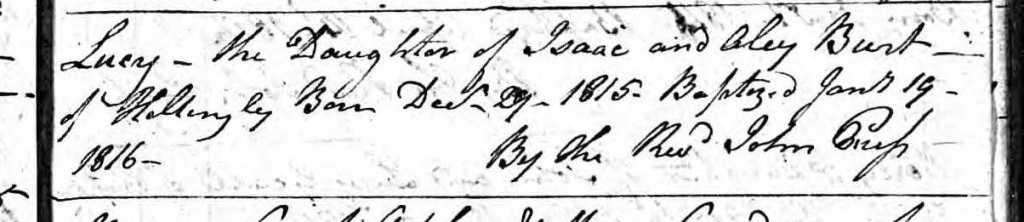 Lucy – the Daughter of Isaac and Aley Burt –
of Hellingley Born Decr 29 – 1815 – Baptized Janr 19 –
1816 – By the Revd John Press